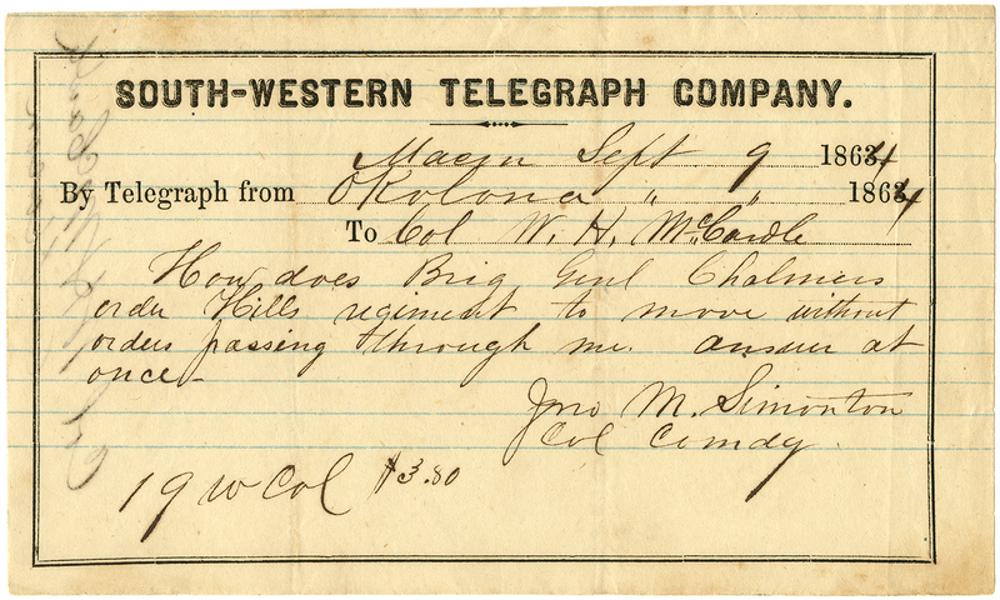 SOUTH-WESTERN TELEGRAPH COMPANY.
Macon Sept 9 1864
By Telegraph from Okolona " " 1864
To Col W. H. McCardle
How does Brig Genl Chalmers
order Hills regiment to move without
orders passing through me. answer at
once-
Jno M. Simonton
Col Comdg.
19 w Col $3.80